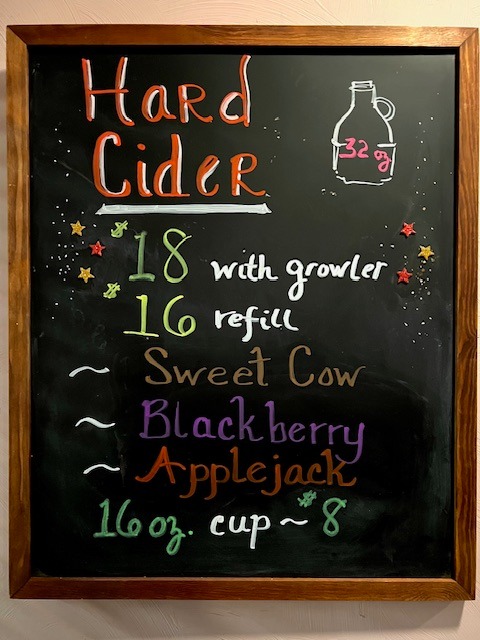 Hard
Cider
32 oz
$18 with growler
$16 refill
~ Sweet Cow
~ Blackberry
~ Applejack
16 oz. cup ~ $8